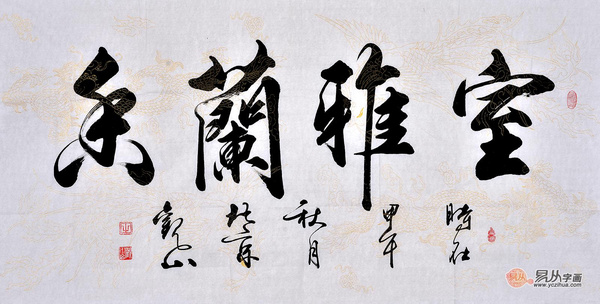 室雅蘭香
時在
甲午
秋月
於京
觀山
易从字画
www.yczihua.com